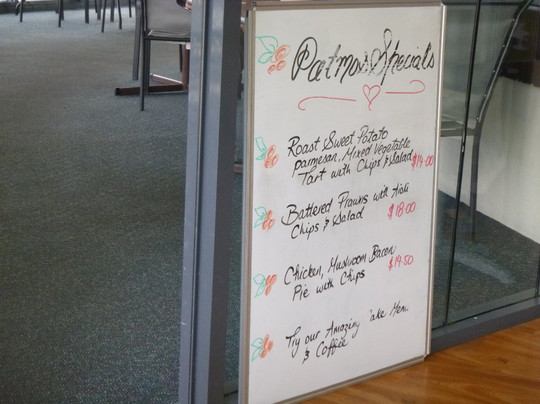 Patmos Specials
Roast Sweet Potato
parmesan, Mixed Vegetable
Tart with Chips & Salad $14.00
Battered Prawns with Aioli
Chips & Salad $18.00
Chicken, Mushroom Bacon
Pie with Chips $14.50
Try our Amazing 'ake Menu
& Coffee